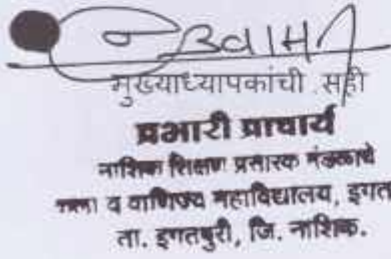 मुख्याध्यापकांची सही
प्रभारी प्राचार्य
नाशिक शिक्षण प्रसारक मंडळाचे
कला व वाणिज्य महाविद्यालय, इगत
ता. इगतपुरी, जि. नाशिक.